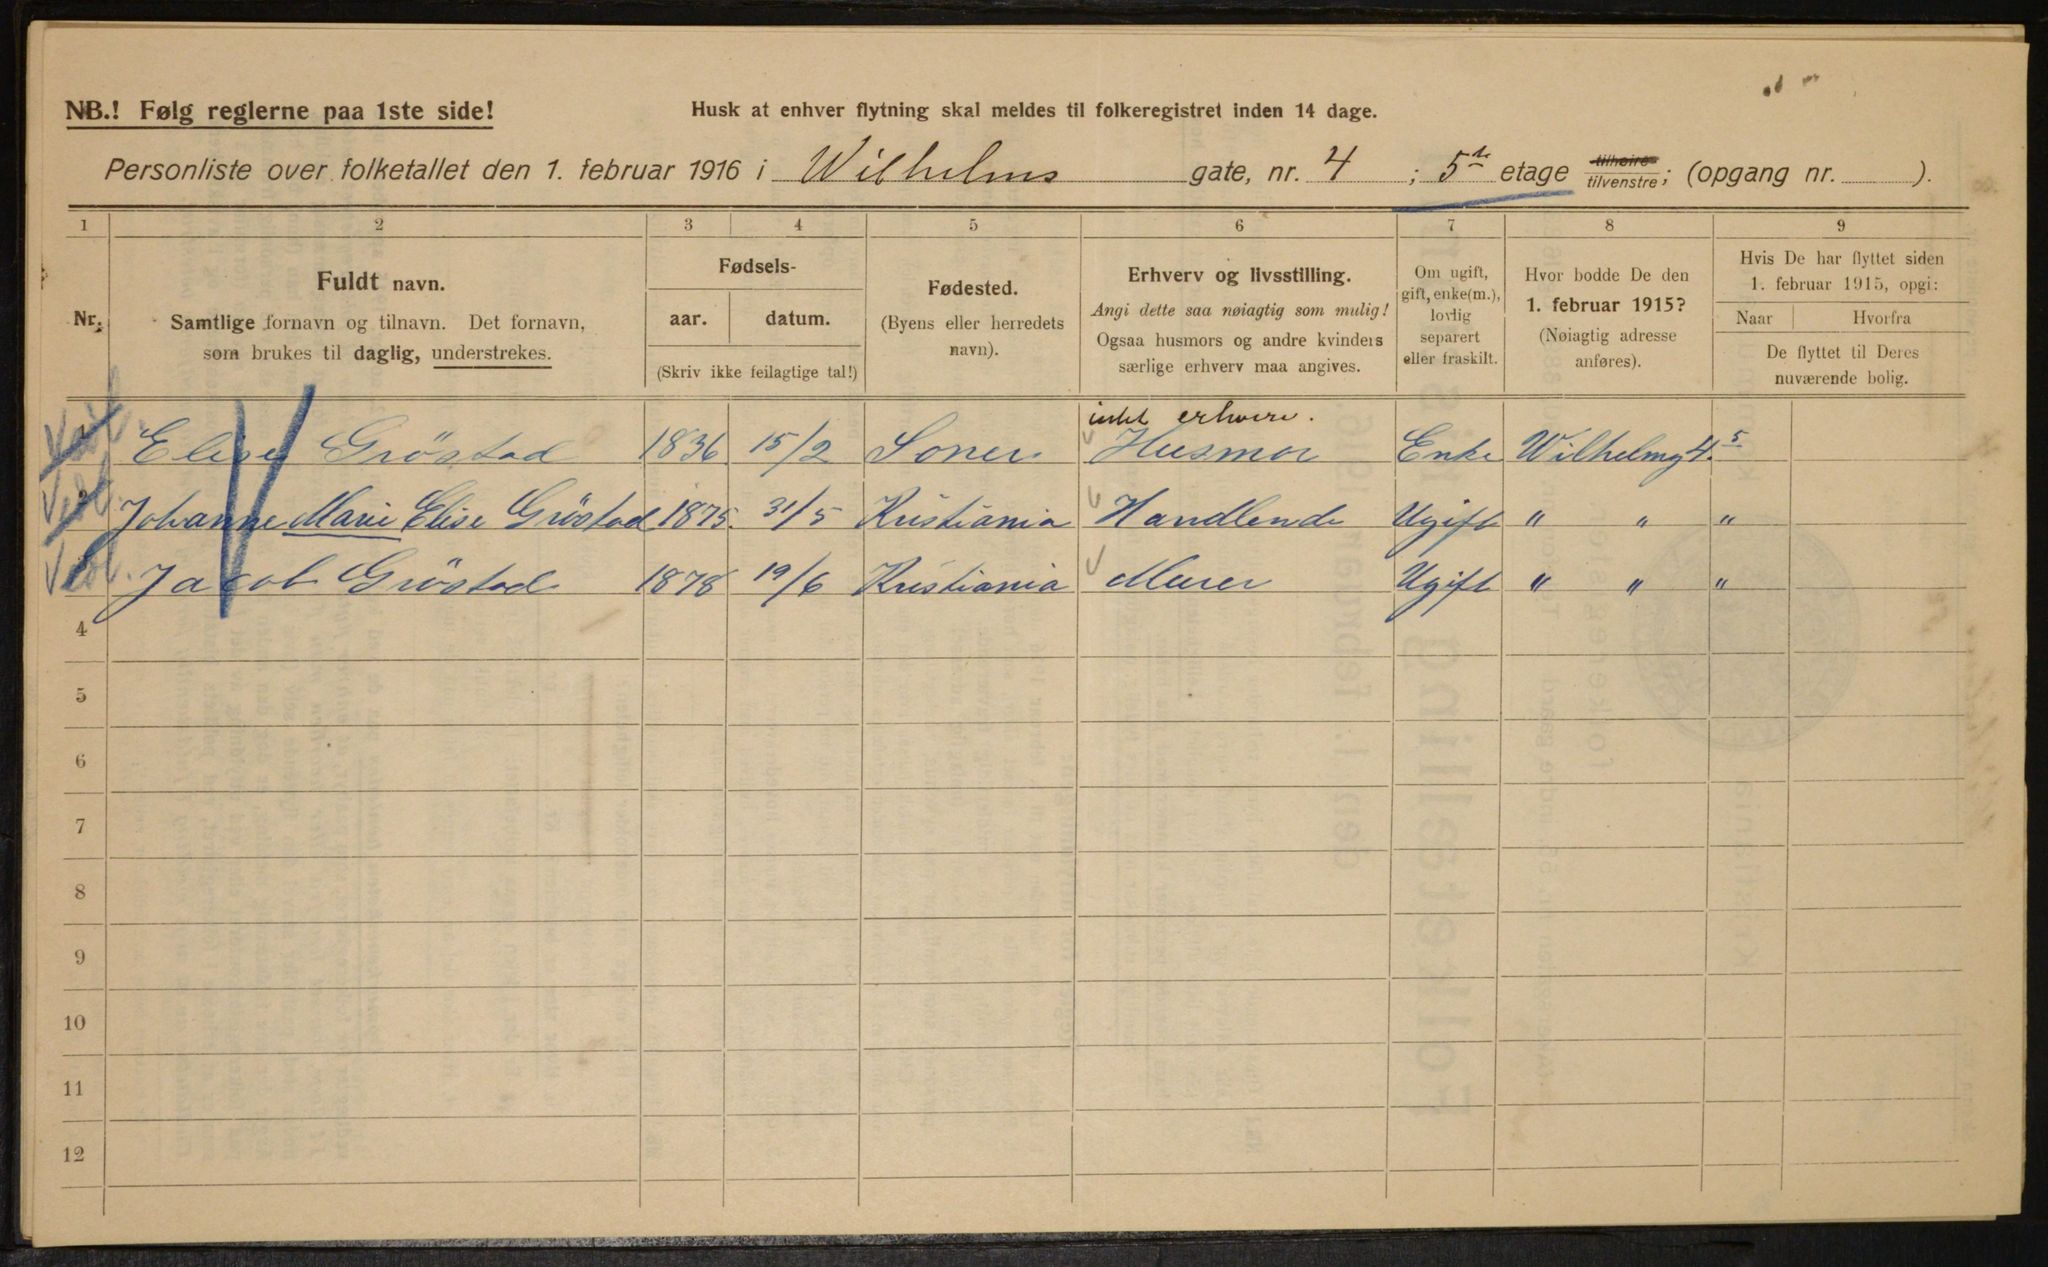 NB.! Følg reglerne paa 1ste side!
Husk at enhver flytning skal meldes til folkeregistret inden 14 dage.
Personliste over folketallet den 1. februar 1916 i Wilhelms gate, nr. 4 ; 5te etage tilhøire tilvenstre; (opgang nr. ).
1 2 3 4 5 6 7 8 9
Nr.
Fuldt navn.
Samtlige fornavn og tilnavn. Det fornavn,
som brukes til daglig, understrekes.
Fødsels-
aar. datum.
(Skriv ikke feilagtige tal!)
Fødested.
(Byens eller herredets
navn).
Erhverv og livsstilling.
Angi dette saa nøiagtig som mulig!
Ogsaa husmors og andre kvinders
særlige erhverv maa angives.
Om ugift,
gift, enke(m.),
lovlig
separert
eller fraskilt.
Hvor bodde De den
1. februar 1915?
(Nøiagtig adresse
anføres).
Hvis De har flyttet siden
1. februar 1915, opgi:
Naar Hvorfra
De flyttet til Deres
nuværende bolig.
intet erhverv.
1 Elise Gröstad 1836 15/2 Soner Husmor Enke Wilhelmsg 4. 5
2 Johanne Marie Elise Gröstad 1875. 31/5 Kristiania Handlende Ugift " " "
3 Jacob Gröstad 1878 19/6 Kristiania Murer Ugift " " "
4
5
6
7
8
9
10
11
12